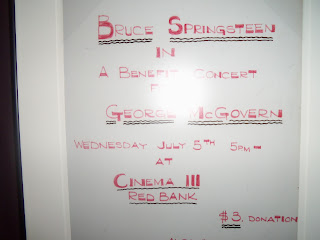 BRUCE SPRINGSTEEN
IN
A BENEFIT CONCERT
F
GEORGE MCGOVERN
WEDNESDAY JULY 5TH 5PM-
AT
CINEMA III
RED BANK
$3. DONATION